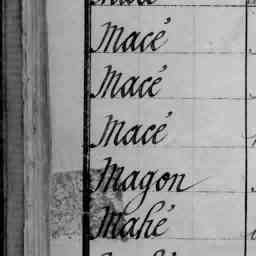 Macé
Macé
Macé
Magon
Mahé